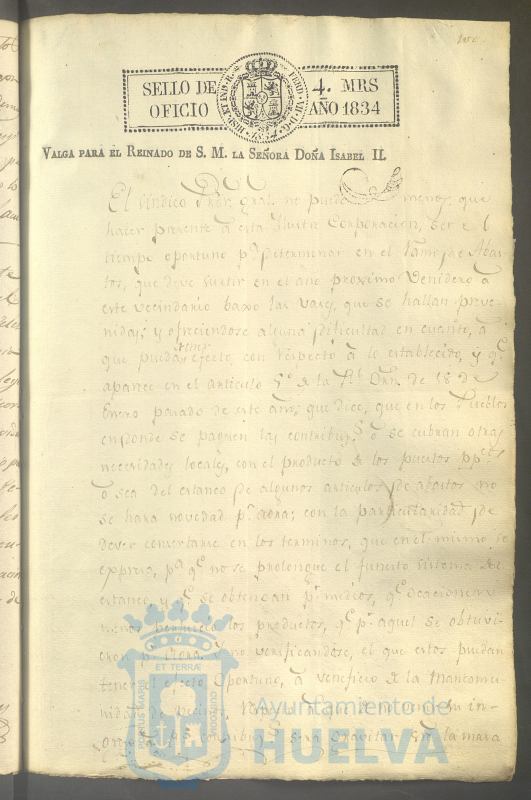 SELLO DE OFICIO
4.º MRS AÑO 1834
VALGA PARA EL REINADO DE S. M. LA SEÑORA DOÑA ISABEL II.
El Síndico Pror. gral. no puede menos que
hacer presente á esta Ilustre Corporacion, ser el
tiempo oportuno pa. determinar en el Ramo de Abas-
tos, que debe surtir en el año proximo Venidero á
este vecindario baxo las vases, que se hallan preve-
nidas; y ofreciendose alguna dificultad en cuanto, á
que puedan tener efecto, con respecto á lo establecido, y qe.
aparece en el articulo de la Rl. Orn. de 18 de
Enero pasado de este año, que dice, que en los Pueblos
en donde se paguen las contribus. ó se cubran otras
necesidades locales, con el producto de los puestos ppcos.
ó sea del estanco de algunos articulos de abastos no
se hará novedad pr. aora; con la particularidad de
dever concertarse en los terminos, que en el mismo se
expresa, pa. qe. no se prolongue el funesto sistema de
estanco, y qe. se obtengan pr. medios, qe. ocacionen
menos perjuicio los productos, qe. pr. aquel se obtuvi-
eron pr. aora, y no verificandose, el que estos puedan
tener el efecto Oportuno, á veneficio de la Mancomu-
nidad de Vecinos, en su in-
greso pr. gravitar la masa
Ayuntamiento de
HUELVA